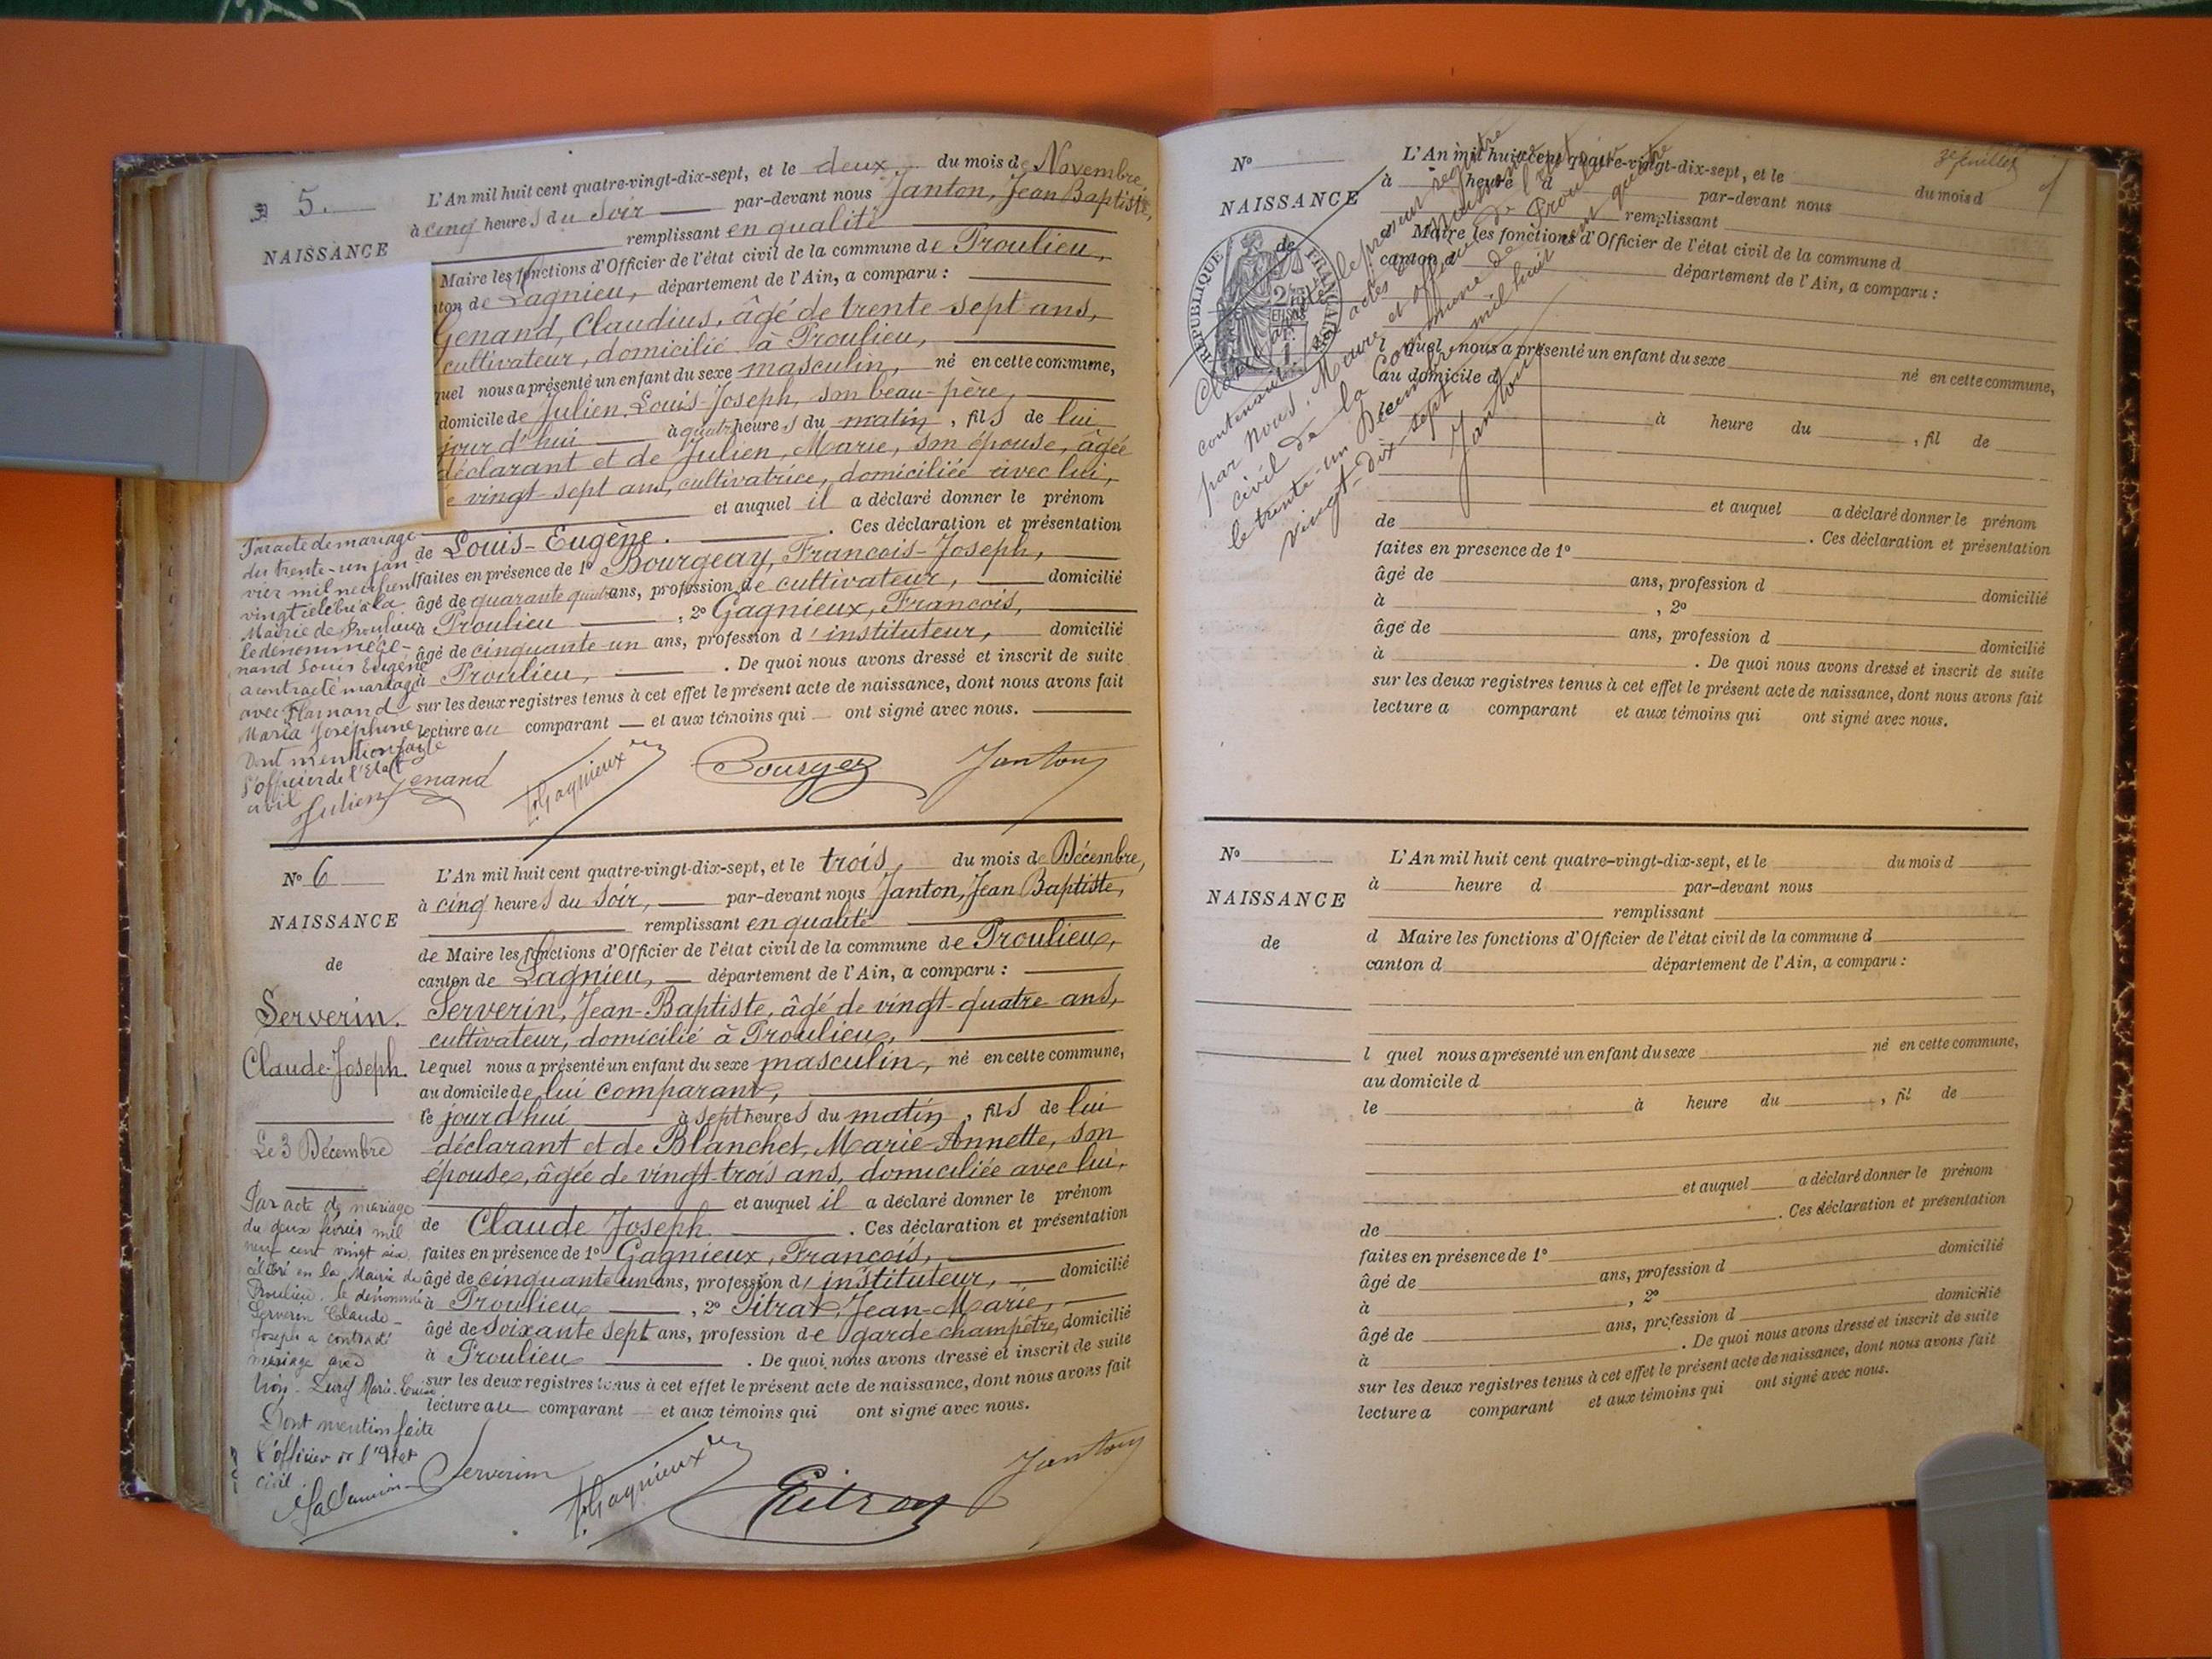 5.
NAISSANCE
L'An mil huit cent quatre-vingt-dix-sept, et le deux du mois de Novembre,
à cinq heures du soir par-devant nous Janton, Jean Baptiste,
remplissant en qualité
Maire les fonctions d'Officier de l'état civil de la commune de Proulieu,
ton de Lagnieu, département de l'Ain, a comparu :
Genand, Claudius, âgé de trente sept ans,
cultivateur, domicilié à Proulieu,
quel nous a présenté un enfant du sexe masculin, né en cette commune,
domicile de Julien Louis-Joseph, son beau-père,
jour d'hui à quatre heures du matin, fils de lui
déclarant et de Julien, Marie, son épouse, âgée
e vingt-sept ans, cultivatrice, domiciliée avec lui,
et auquel il a déclaré donner le prénom
de Louis-Eugène. Ces déclaration et présentation
faites en présence de 1° Bourgeay, Francois-Joseph,
âgé de quarante ans, profession de cultivateur, domicilié
à Proulieu, 2° Gagnieux, Francois,
âgé de cinquante-un ans, profession d'instituteur, domicilié
à Proulieu, . De quoi nous avons dressé et inscrit de suite
sur les deux registres tenus à cet effet le présent acte de naissance, dont nous avons fait
lecture au comparant et aux témoins qui ont signé avec nous.
Par acte de mariage
du trente-un jan
vier mil neuf cent
vingt célébré à la
Mairie de Proulieu
le dénommé Ge-
nand Louis Eugène
a contracté mariage
avec Flamand
Maria Joséphine
Dont mention faite
l'officier de l'Etat
civil
Julien
Genand
Gagnieux
Janton
N° 6
NAISSANCE
de
Serverin.
Claude-Joseph.
Le 3 Décembre
L'An mil huit cent quatre-vingt-dix-sept, et le trois, du mois de Décembre,
à cinq heures du soir, par-devant nous Janton, Jean Baptiste,
remplissant en qualité
de Maire les fonctions d'Officier de l'état civil de la commune de Proulieu,
canton de Lagnieu, département de l'Ain, a comparu :
Serverin, Jean-Baptiste, âgé de vingt-quatre ans,
cultivateur, domicilié à Proulieu,
lequel nous a présenté un enfant du sexe masculin, né en cette commune,
au domicile de lui comparant,
le jourd'hui à sept heures du matin, fils de lui
déclarant et de Blanchet, Marie-Annette, son
épouse, âgée de vingt-trois ans, domiciliée avec lui,
et auquel il a déclaré donner le prénom
de Claude Joseph. Ces déclaration et présentation
faites en présence de 1° Gagnieux, Francois,
âgé de cinquante un ans, profession d'instituteur, domicilié
à Proulieu, 2° Pitrat, Jean-Marie,
âgé de soixante sept ans, profession de garde champêtre, domicilié
à Proulieu . De quoi nous avons dressé et inscrit de suite
sur les deux registres tenus à cet effet le présent acte de naissance, dont nous avons fait
lecture au comparant et aux témoins qui ont signé avec nous.
Par acte de mariage
du deux février mil
neuf cent vingt six
célébré en la Mairie de
Proulieu le dénommé
Serverin Claude-
Joseph a contracté
mariage avec
Marie-Louise
Dont mention faite
L'officier de l'Etat
civil
Serverin
Gagnieux
Pitrat
Janton
3e feuillet
N°
NAISSANCE
de
RÉPUBLIQUE FRANÇAISE
L'An mil huit cent quatre-vingt-dix-sept, et le du mois d
à heure d par-devant nous
remplissant
d Maire les fonctions d'Officier de l'état civil de la commune d
canton d département de l'Ain, a comparu :
l quel nous a présenté un enfant du sexe né en cette commune,
au domicile d
à heure du , fil de
et auquel a déclaré donner le prénom
de . Ces déclaration et présentation
faites en présence de 1°
âgé de ans, profession d domicilié
à , 2°
âgé de ans, profession d domicilié
à . De quoi nous avons dressé et inscrit de suite
sur les deux registres tenus à cet effet le présent acte de naissance, dont nous avons fait
lecture a comparant et aux témoins qui ont signé avec nous.
le présent registre
contenant actes
par nous, Maire et officier de l'état
civil de la Commune de Proulieu
le trente-un Décembre mil huit cent quatre
vingt-dix-sept
Janton
N°
NAISSANCE
de
L'An mil huit cent quatre-vingt-dix-sept, et le du mois d
à heure d par-devant nous
remplissant
d Maire les fonctions d'Officier de l'état civil de la commune d
canton d département de l'Ain, a comparu :
l quel nous a présenté un enfant du sexe né en cette commune,
au domicile d
le à heure du , fil de
et auquel a déclaré donner le prénom
de . Ces déclaration et présentation
faites en présence de 1° domicilié
âgé de ans, profession d
à , 2° domicilié
âgé de ans, profession d
à . De quoi nous avons dressé et inscrit de suite
sur les deux registres tenus à cet effet le présent acte de naissance, dont nous avons fait
lecture a comparant et aux témoins qui ont signé avec nous.